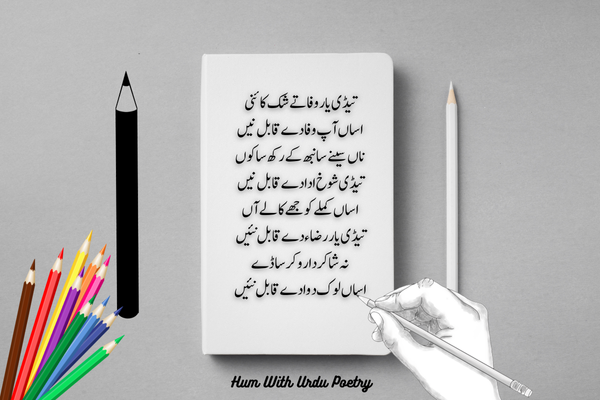 تیڈی یار وفا تے شک کائنی
اساں آپ وفا دے قابل نیں
ناں سینے سانبھ کے رکھ ساکوں
تیڈی شوخ ادا دے قابل نیں
اساں کملے کوجھے کالے آں
تیڈی یار رضاء دے قابل نئیں
نہ شاکر دارو کر ساڈے
اساں لوک دوا دے قابل نئیں
Hum With Urdu Poetry